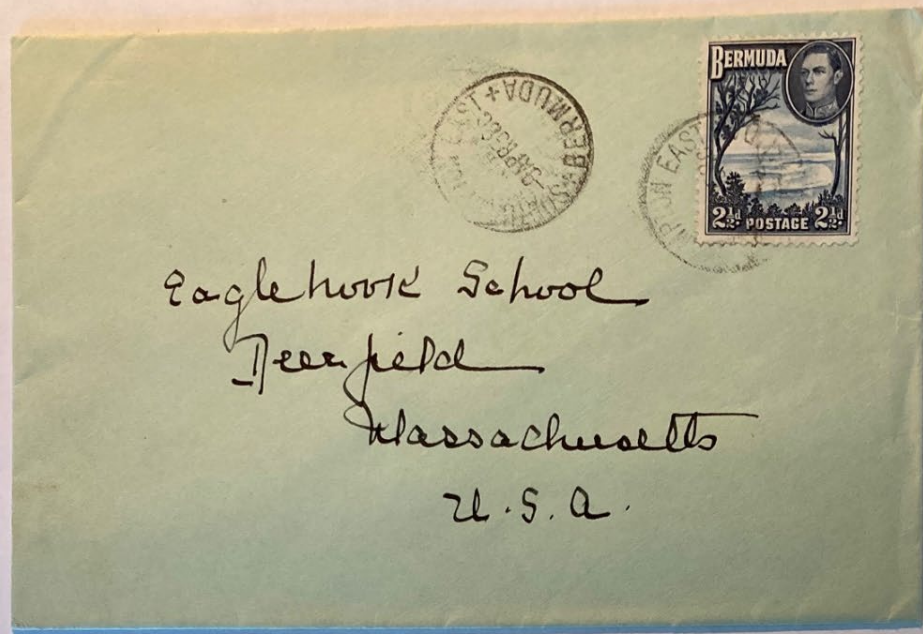 BERMUDA
2½d POSTAGE 2½d
BERMUDA
EAST
Eaglebrook School
Deerfield
Massachusetts
U.S.A.